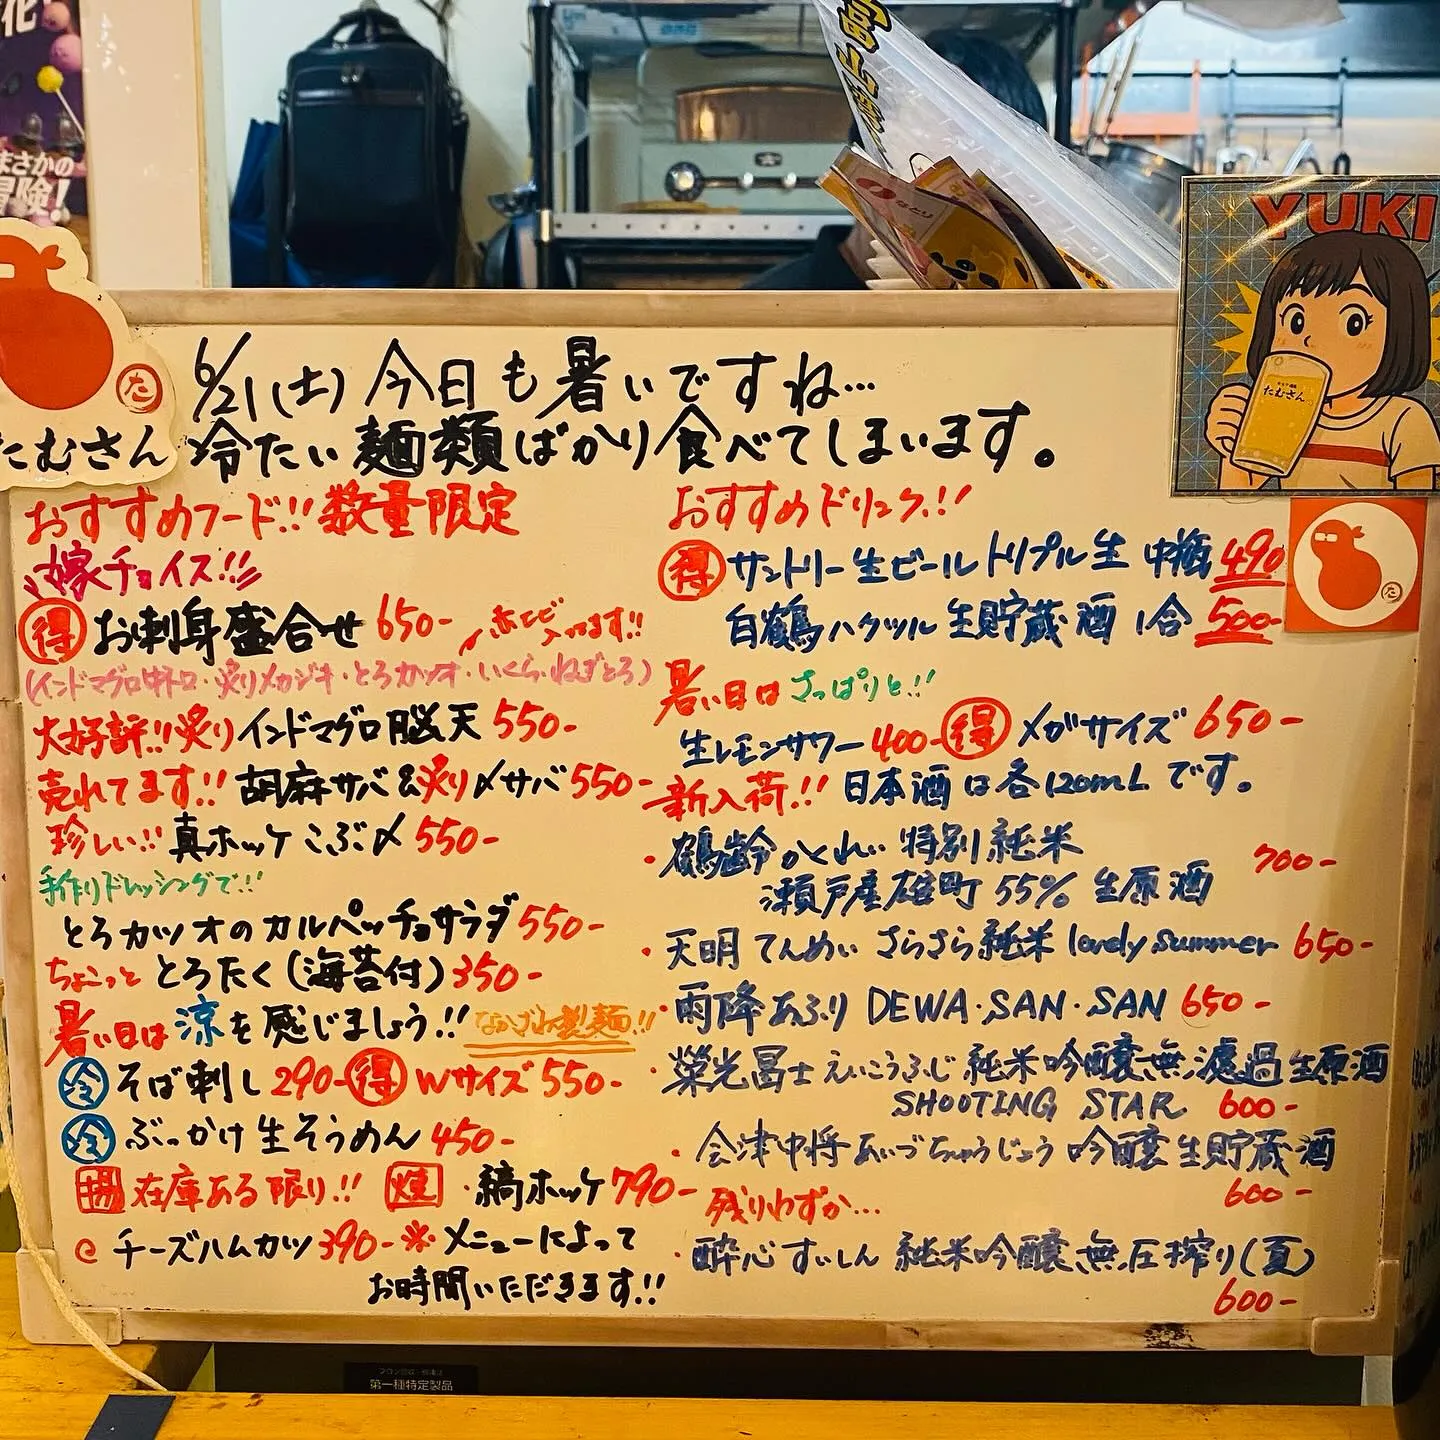 まさかの
冒険!
富山
なとり
YUKI
たむさん
た
たむさん
6/21(土)今日も暑いですね…
冷たい麺類ばかり食べてしまいます。
おすすめフード!!数量限定
嫁チョイス!!
得 お刺身盛合せ 650-
赤エビ入ってます!!
(インドマグロ中トロ・炙りメカジキ・とろカツオ・いくら・ねぎとろ)
大好評!!炙りインドマグロ脳天 550-
売れてます!!胡麻サバ&炙り〆サバ 550-
珍しい!!真ホッケこぶ〆 550-
手作りドレッシングで!!
とろカツオのカルパッチョサラダ 550-
ちょこっと とろたく(海苔付) 350-
暑い日は涼を感じましょう!!
なかざわ製麺!!
冷 そば刺し 290- 得 Wサイズ 550-
冷 ぶっかけ生そうめん 450-
揚 在庫ある限り!! 焼・縞ホッケ 790-
@チーズハムカツ 390- ※メニューによって
お時間いただきます!!
おすすめドリンク!!
得 サントリー生ビールトリプル生 中瓶 490
白鶴ハクツル生貯蔵酒 1合 500-
暑い日はさっぱりと!!
生レモンサワー 400- 得 メガサイズ 650-
新入荷!! 日本酒は各120mLです。
・鶴齢 かくれい 特別純米
瀬戸産雄町55% 生原酒 700-
・天明 てんめい さらさら純米 lovely summer 650-
・雨降 あふり DEWA・SAN・SAN 650-
・榮光冨士 えいこうふじ 純米吟醸無濾過生原酒
SHOOTING STAR 600-
・会津中将 あいづちゅうじょう 吟醸生貯蔵酒
600-
残りわずか…
・酔心 すいしん 純米吟醸無圧搾り(夏)
600-
た
第一種特定製品